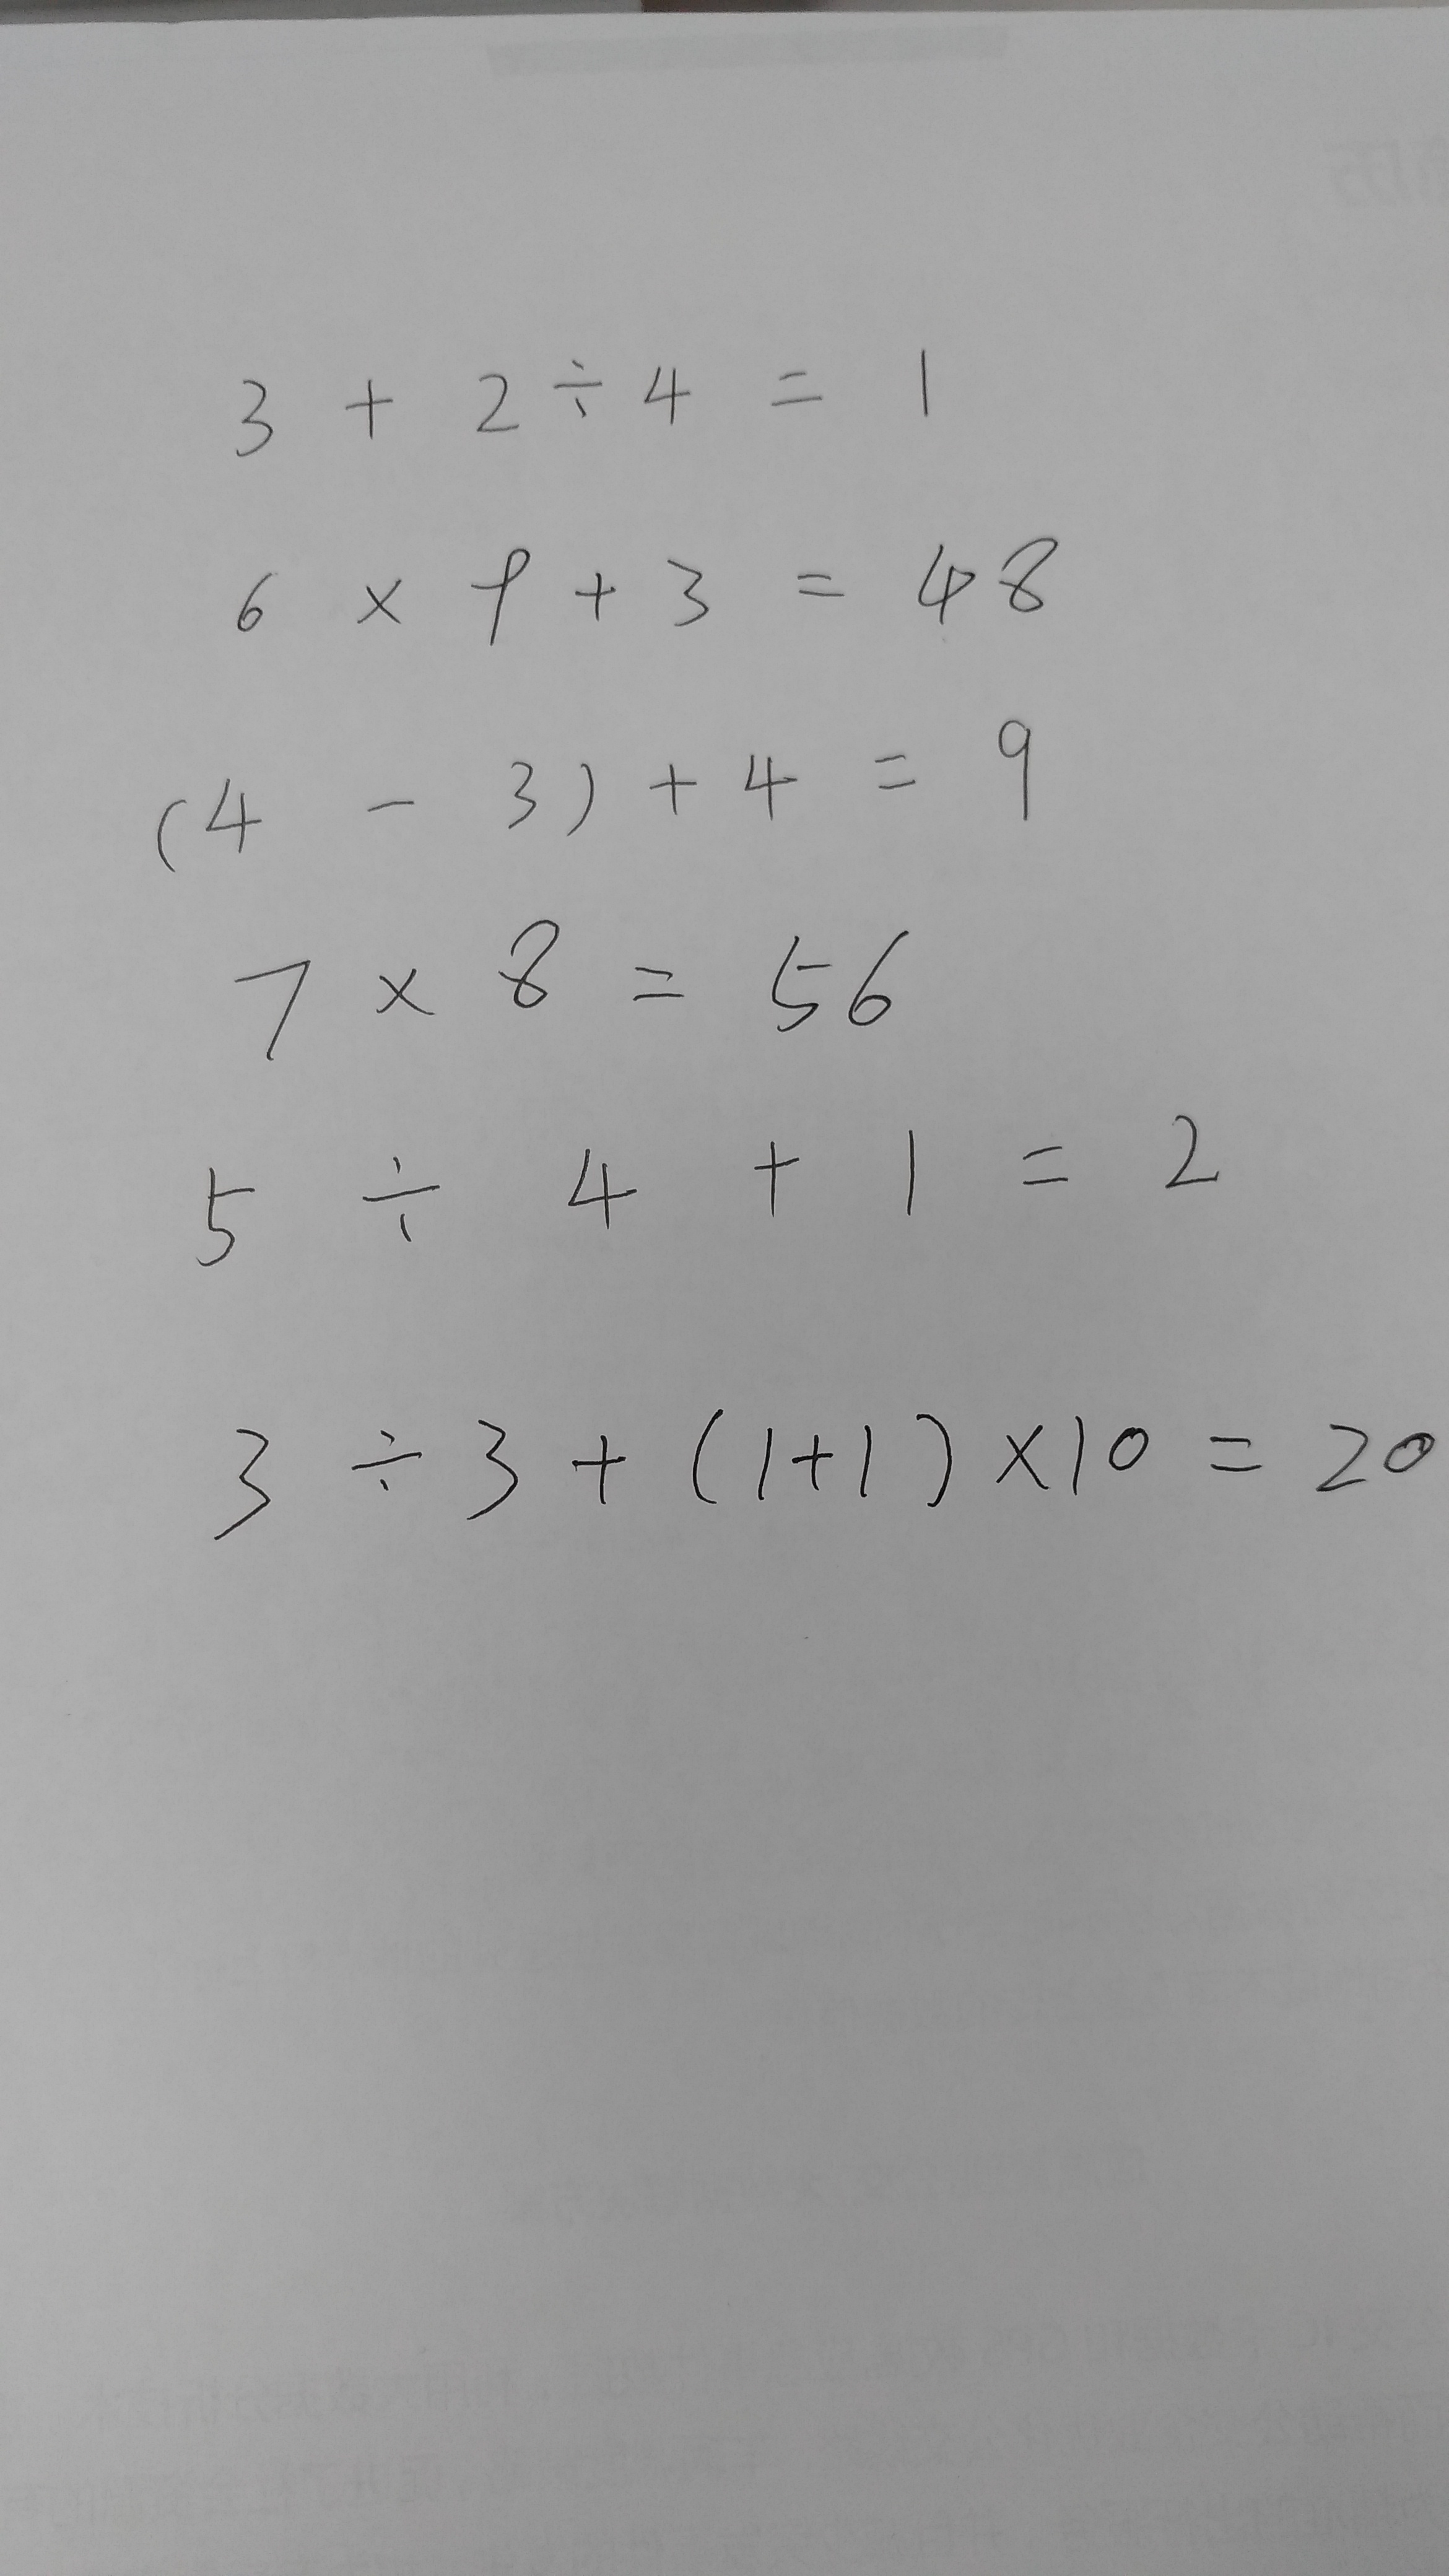 3 + 2 ÷ 4 = 1
6 × 9 + 3 = 48
(4 - 3) + 4 = 9
7 × 8 = 56
5 ÷ 4 + 1 = 2
3 ÷ 3 + (1+1) ×10 = 20